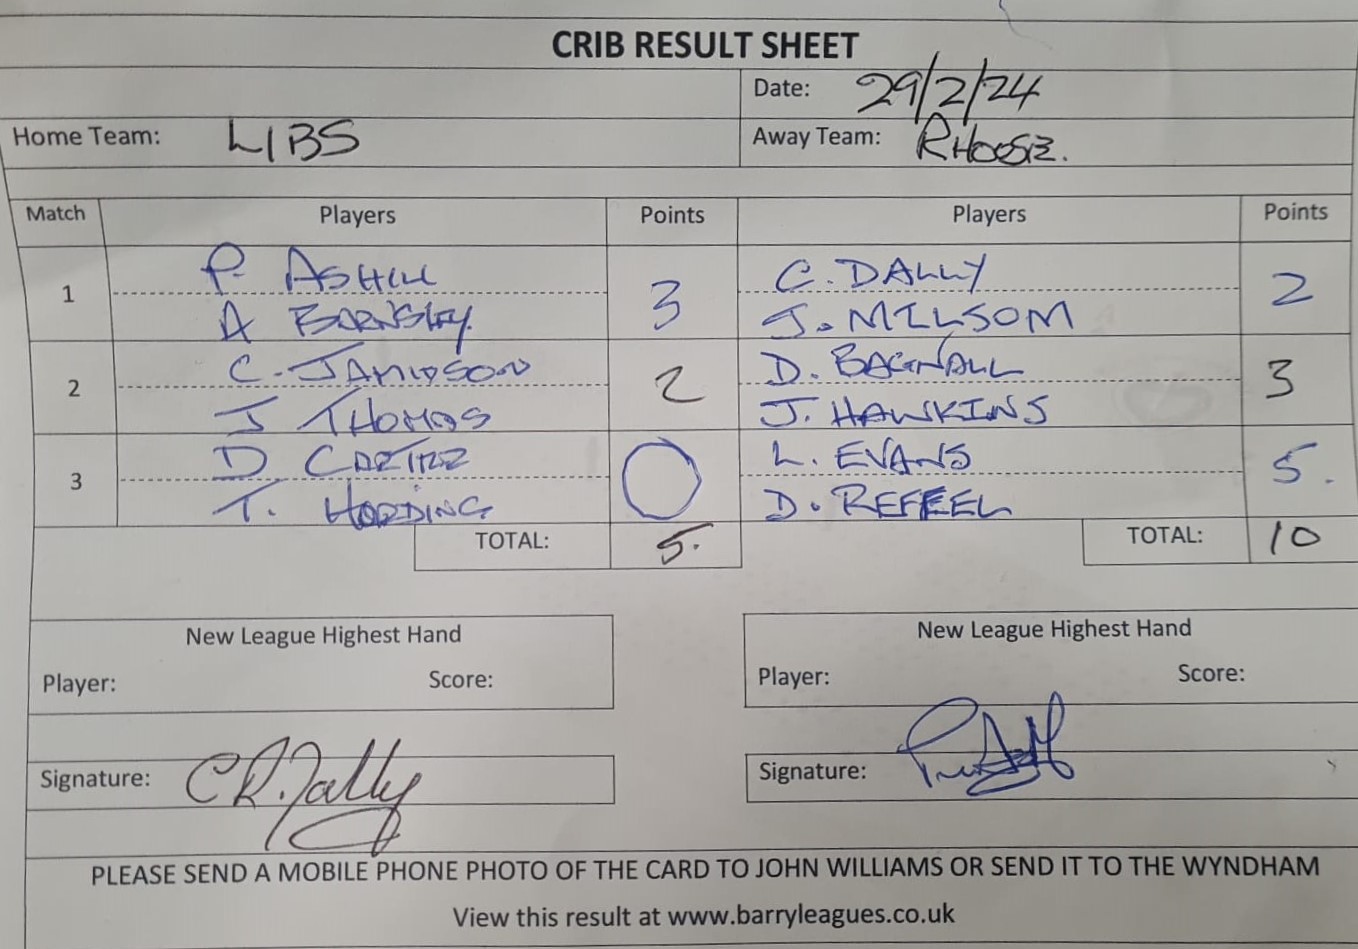 CRIB RESULT SHEET
Date: 29/2/24
Home Team: LIBS Away Team: RHOOSE.
Match Players Points Players Points
1 P. ASHILL 3 C. DALLY 2
A BARNSLEY J. MILSOM
2 C. JAMIESON 2 D. BAGNALL 3
J THOMAS J. HAWKINS
3 D CARTER 0 L. EVANS 5.
T. HARDING D. REFEEL
TOTAL: 5. TOTAL: 10
New League Highest Hand New League Highest Hand
Player: Score: Player: Score:
Signature: C R. Dally Signature:
PLEASE SEND A MOBILE PHONE PHOTO OF THE CARD TO JOHN WILLIAMS OR SEND IT TO THE WYNDHAM
View this result at www.barryleagues.co.uk